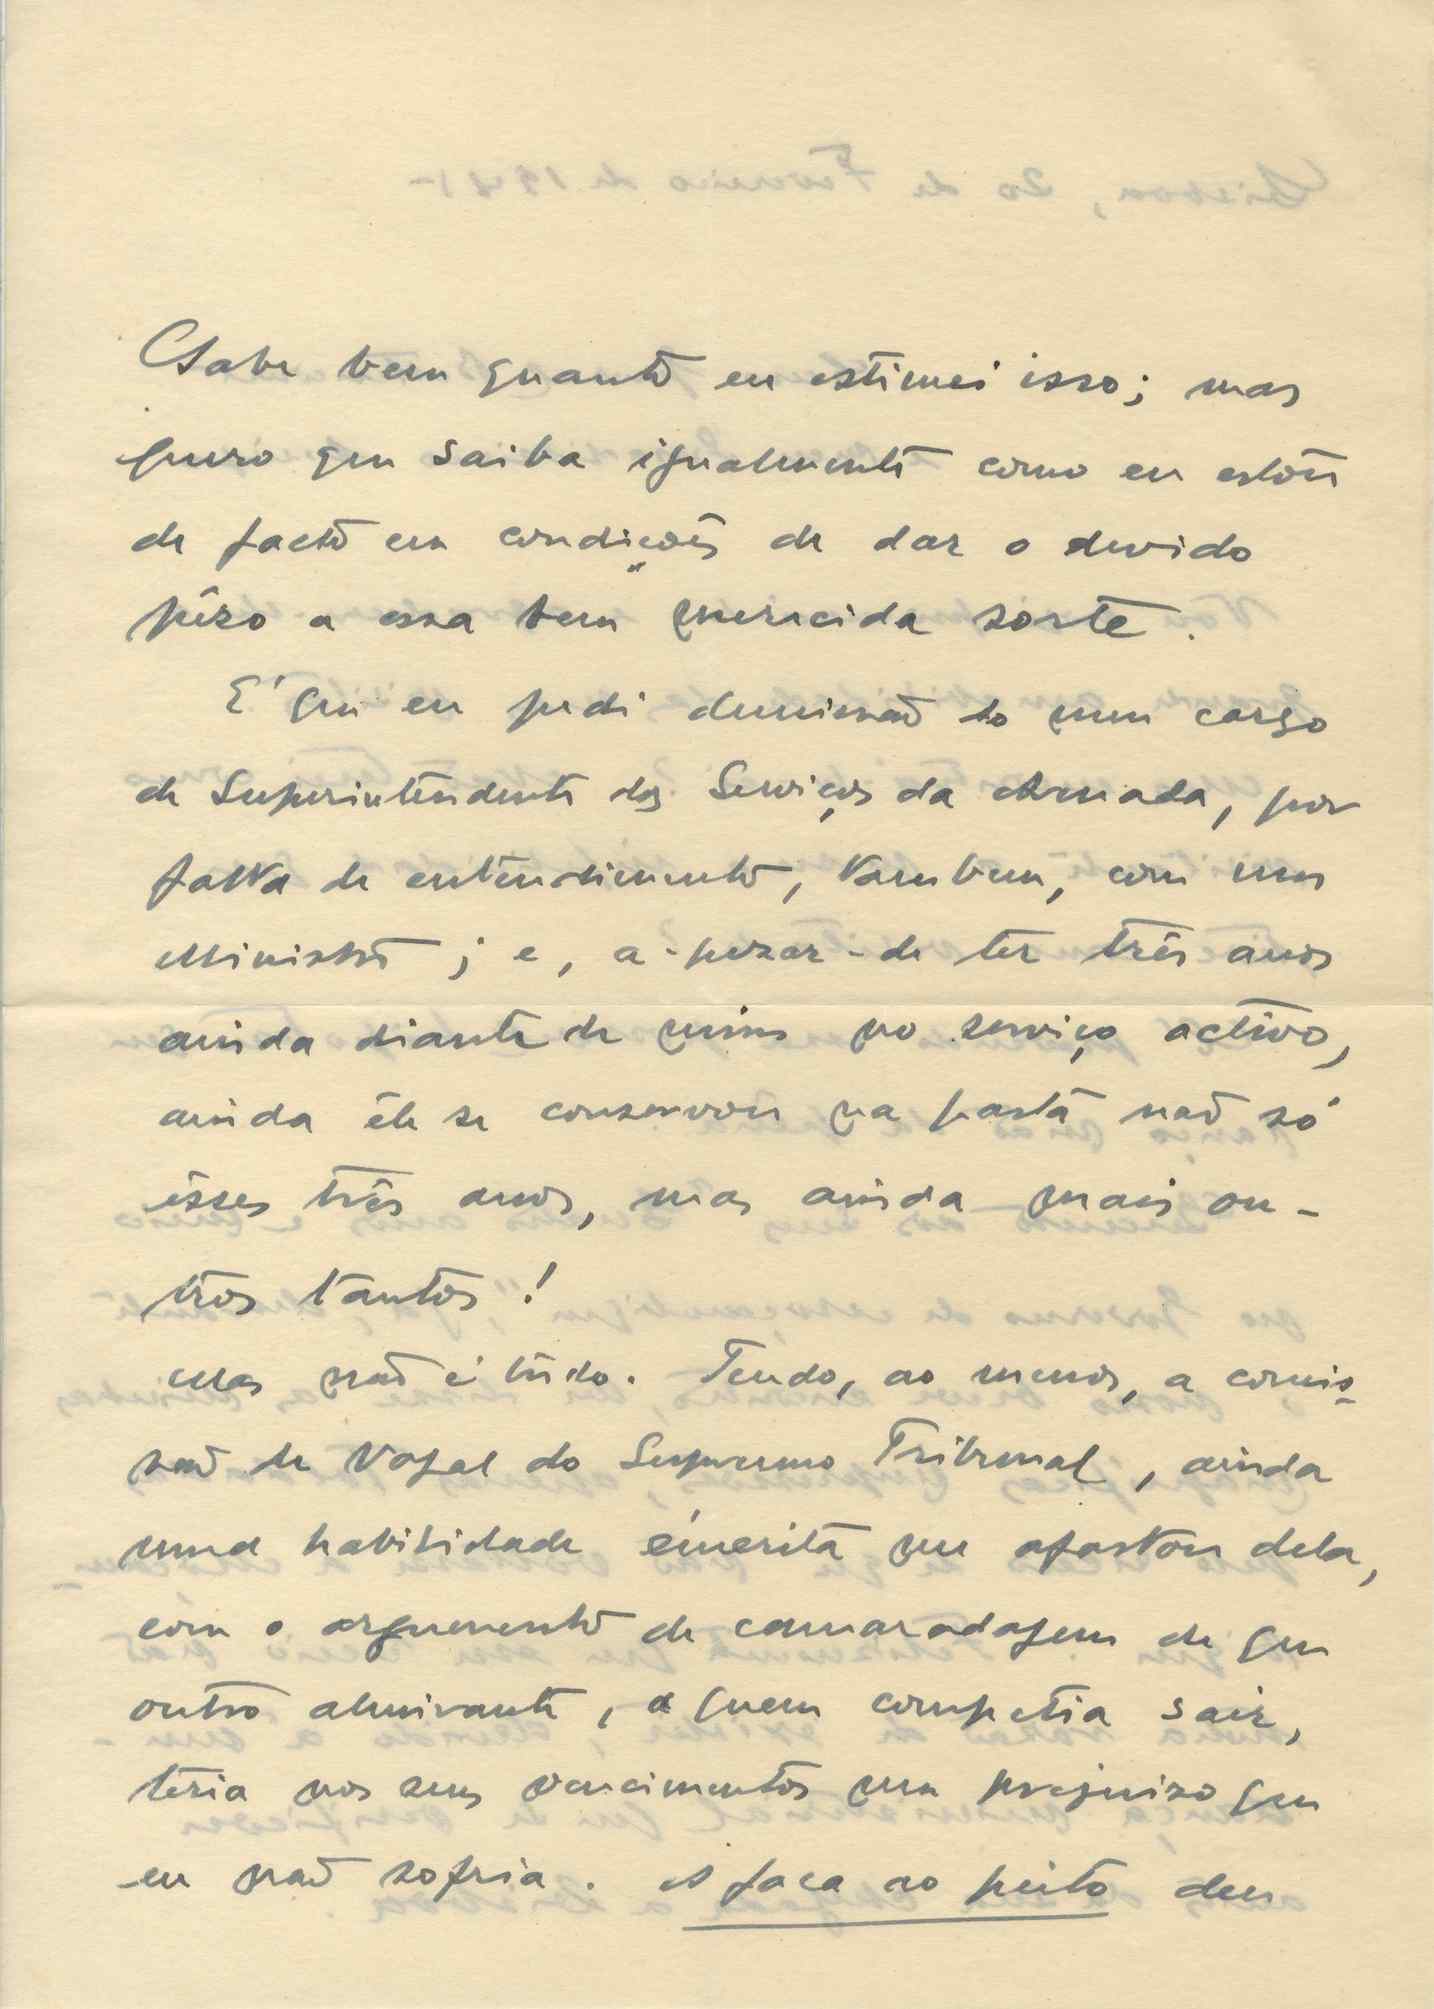 Sabe bem quanto eu estimei isso; mas
quero que saiba igualmente como eu estou
de facto em condições de dar o devido
pêso a essa bem merecida sorte.
E' que eu pedi demissão do meu cargo
de Superintendente dos Serviços da Armada, por
falta de entendimento, tambem, com um
Ministro; e, a-pezar-de ter três anos
ainda diante de mim no serviço activo,
ainda êle se conservou na pasta não só
êsses três anos, mas ainda mais ou-
tros tantos!
Mas não é tudo. Tendo, ao menos, a comis-
são de Vogal do Supremo Tribunal, ainda
uma habilidade émerita me afastou dela,
com o argumento de camaradagem de que
outro almirante, a quem competia sair,
teria nos seus vencimentos um prejuizo que
eu não sofria. A faca ao peito deu